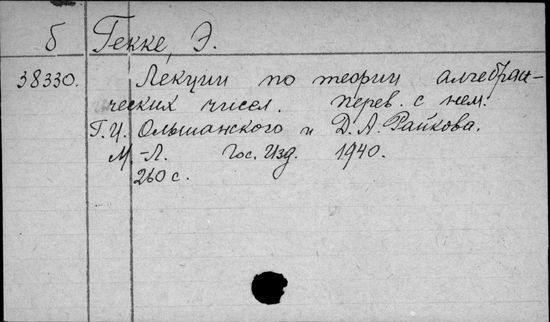 б Гекке, Э.
38330. Лекции по теории алгебраи-
ческих чисел. перев. с нем.
Г.И. Ольшанского и Д.А. Райкова.
М.-Л. Гос. Изд. 1940.
260 с.